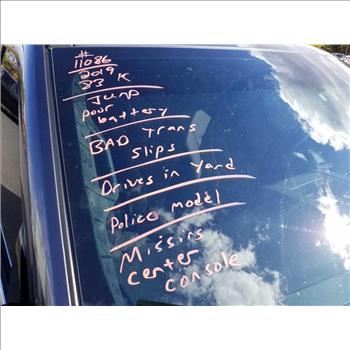 #
11086
2019
83 K
Jump
pour
battery
BAD Trans
Slips
Drives in Yard.
Police model
Missins
Center
console